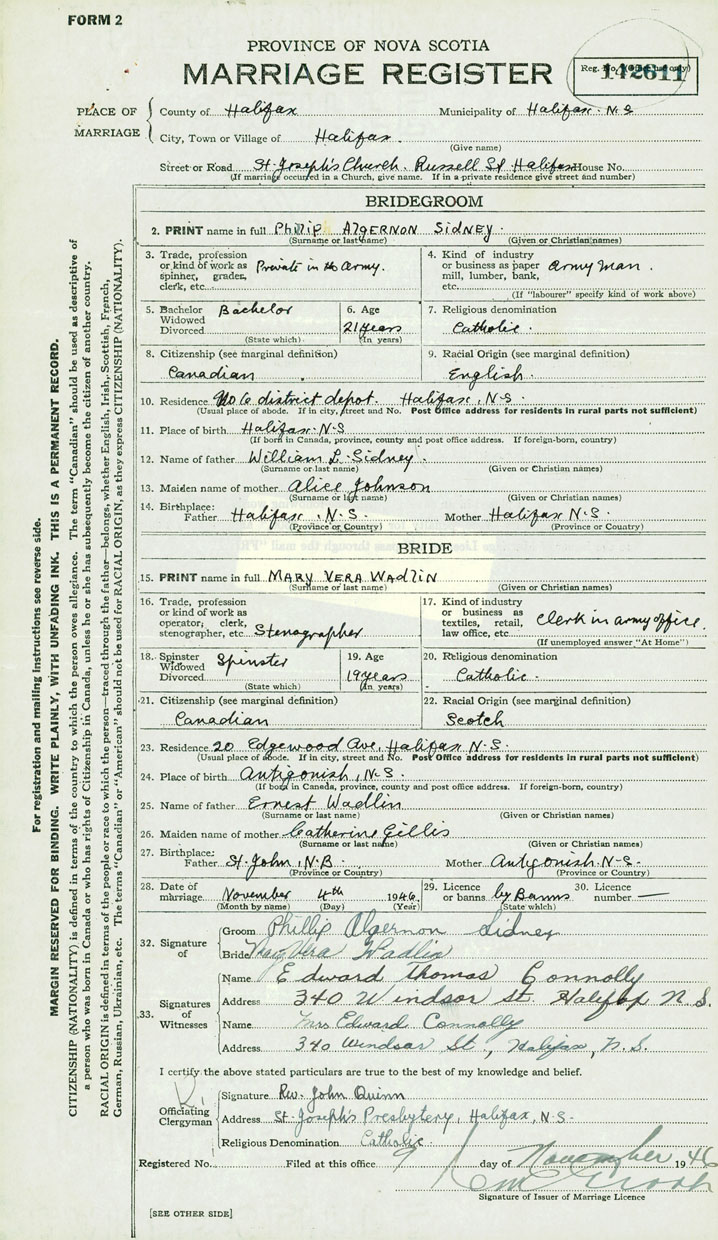 FORM 2
PROVINCE OF NOVA SCOTIA
MARRIAGE REGISTER
Reg. No. (Office use only)
142611
PLACE OF MARRIAGE
County of Halifax Municipality of Halifax. N.S
City, Town or Village of Halifax.
(Give name)
Street or Road St. Joseph's Church. Russell St Halifax House No.
(If marriage occurred in a Church, give name. If in a private residence give street and number)
BRIDEGROOM
2. PRINT name in full Phillip Algernon Sidney.
(Surname or last name) (Given or Christian names)
3. Trade, profession or kind of work as spinner, grader, clerk, etc. Private in the Army.
4. Kind of industry or business as paper mill, lumber, bank, etc. Army man.
(If "labourer" specify kind of work above)
5. Bachelor Widowed Divorced Bachelor
(State which)
6. Age 21 years
(In years)
7. Religious denomination
Catholic.
8. Citizenship (see marginal definition)
Canadian
9. Racial Origin (see marginal definition)
English.
10. Residence No 6 district depot. Halifax, N.S.
(Usual place of abode. If in city, street and No. Post Office address for residents in rural parts not sufficient)
11. Place of birth Halifax. N.S
(If born in Canada, province, county and post office address. If foreign-born, country)
12. Name of father William L. Sidney.
(Surname or last name) (Given or Christian names)
13. Maiden name of mother Alice Johnson
(Surname or last name) (Given or Christian names)
14. Birthplace: Father Halifax, N.S. Mother Halifax N.S.
(Province or Country) (Province or Country)
BRIDE
15. PRINT name in full Mary Vera Wadlin
(Surname or last name) (Given or Christian names)
16. Trade, profession or kind of work as operator, clerk, stenographer, etc. Stenographer
17. Kind of industry or business as textiles, retail, law office, etc. Clerk in army office.
(If unemployed answer "At Home")
18. Spinster Widowed Divorced Spinster
(State which)
19. Age 19 years
(In years)
20. Religious denomination
Catholic.
21. Citizenship (see marginal definition)
Canadian
22. Racial Origin (see marginal definition)
Scotch
23. Residence 20 Edgewood Ave, Halifax N.S.
(Usual place of abode. If in city, street and No. Post Office address for residents in rural parts not sufficient)
24. Place of birth Antigonish, N.S.
(If born in Canada, province, county and post office address. If foreign-born, country)
25. Name of father Ernest Wadlin
(Surname or last name) (Given or Christian names)
26. Maiden name of mother Catherine Gillis
(Surname or last name) (Given or Christian names)
27. Birthplace: Father St. John, N.B. Mother Antigonish. N-S-
(Province or Country) (Province or Country)
28. Date of marriage November 4th 1946
(Month by name) (Day) (Year)
29. Licence or banns by Banns
(State which)
30. Licence number —
32. Signature of
Groom Phillip Algernon Sidney
Bride Mary Vera Wadlin
33. Signatures of Witnesses
Name Edward Thomas Connolly
Address 340 Windsor St. Halifax N.S.
Name Mrs Edward Connolly
Address 340 Windsor St., Halifax, N.S.
I certify the above stated particulars are true to the best of my knowledge and belief.
Officiating Clergyman
Signature Rev. John Quinn
Address St. Joseph's Presbytery, Halifax, N.S.
Religious Denomination Catholic
Registered No. Filed at this office 9 day of November 1946
Signature of Issuer of Marriage Licence
[SEE OTHER SIDE]
For registration and mailing instructions see reverse side.
MARGIN RESERVED FOR BINDING. WRITE PLAINLY, WITH UNFADING INK. THIS IS A PERMANENT RECORD.
CITIZENSHIP (NATIONALITY) is defined in terms of the country to which the person owes allegiance. The term "Canadian" should be used as descriptive of
a person who was born in Canada or who has rights of Citizenship in Canada, unless he or she has subsequently become the citizen of another country.
RACIAL ORIGIN is defined in terms of the people or race to which the person—traced through the father—belongs, whether English, Irish, Scottish, French,
German, Russian, Ukrainian, etc. The terms "Canadian" or "American" should not be used for RACIAL ORIGIN, as they express CITIZENSHIP (NATIONALITY).